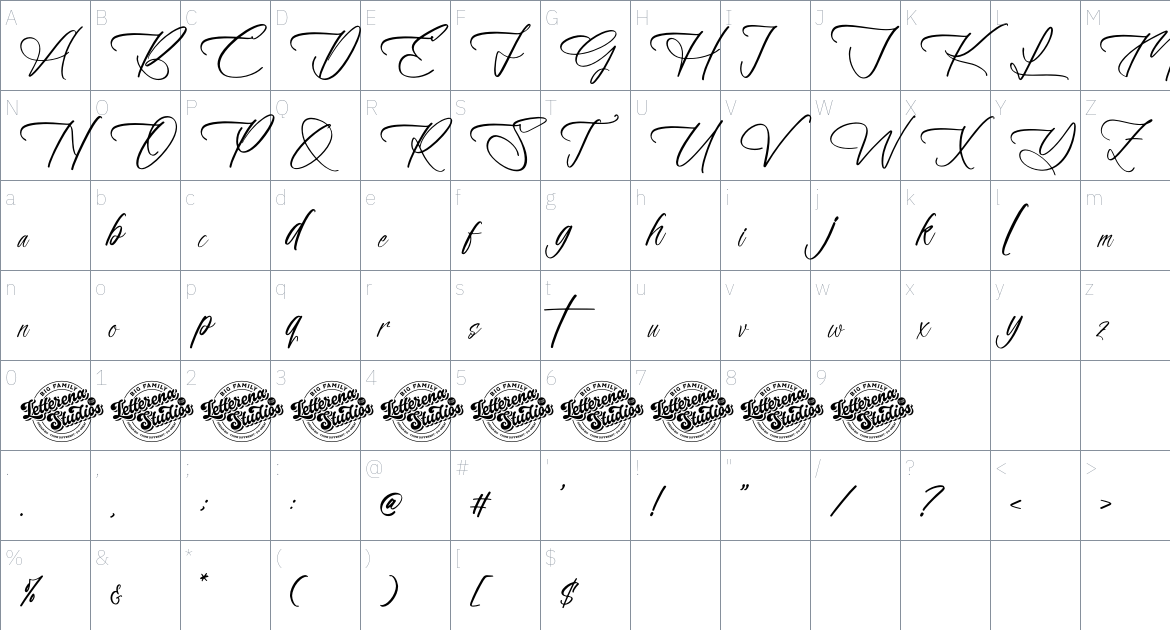 A B C D E F G H I J K L M
A B C D E F G H I J K L M
N O P Q R S T U V W X Y Z
N O P Q R S T U V W X Y Z
a b c d e f g h i j k l m
a b c d e f g h i j k l m
n o p q r s t u v w x y z
n o p q r s t u v w x y z
0 1 2 3 4 5 6 7 8 9
BIG FAMILY BIG FAMILY BIG FAMILY BIG FAMILY BIG FAMILY BIG FAMILY BIG FAMILY BIG FAMILY BIG FAMILY BIG FAMILY
Letterena Letterena Letterena Letterena Letterena Letterena Letterena Letterena Letterena Letterena
Studios Studios Studios Studios Studios Studios Studios Studios Studios Studios
. , ; : @ # ' ! " / ? < >
. , ; : @ # ' ! " / ? < >
% & * ( ) [ $
% & * ( ) [ $